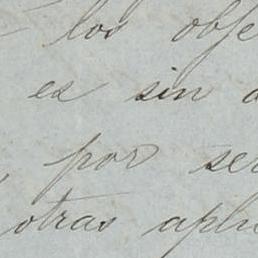 los obje
es sin d
, por ser
otras apli